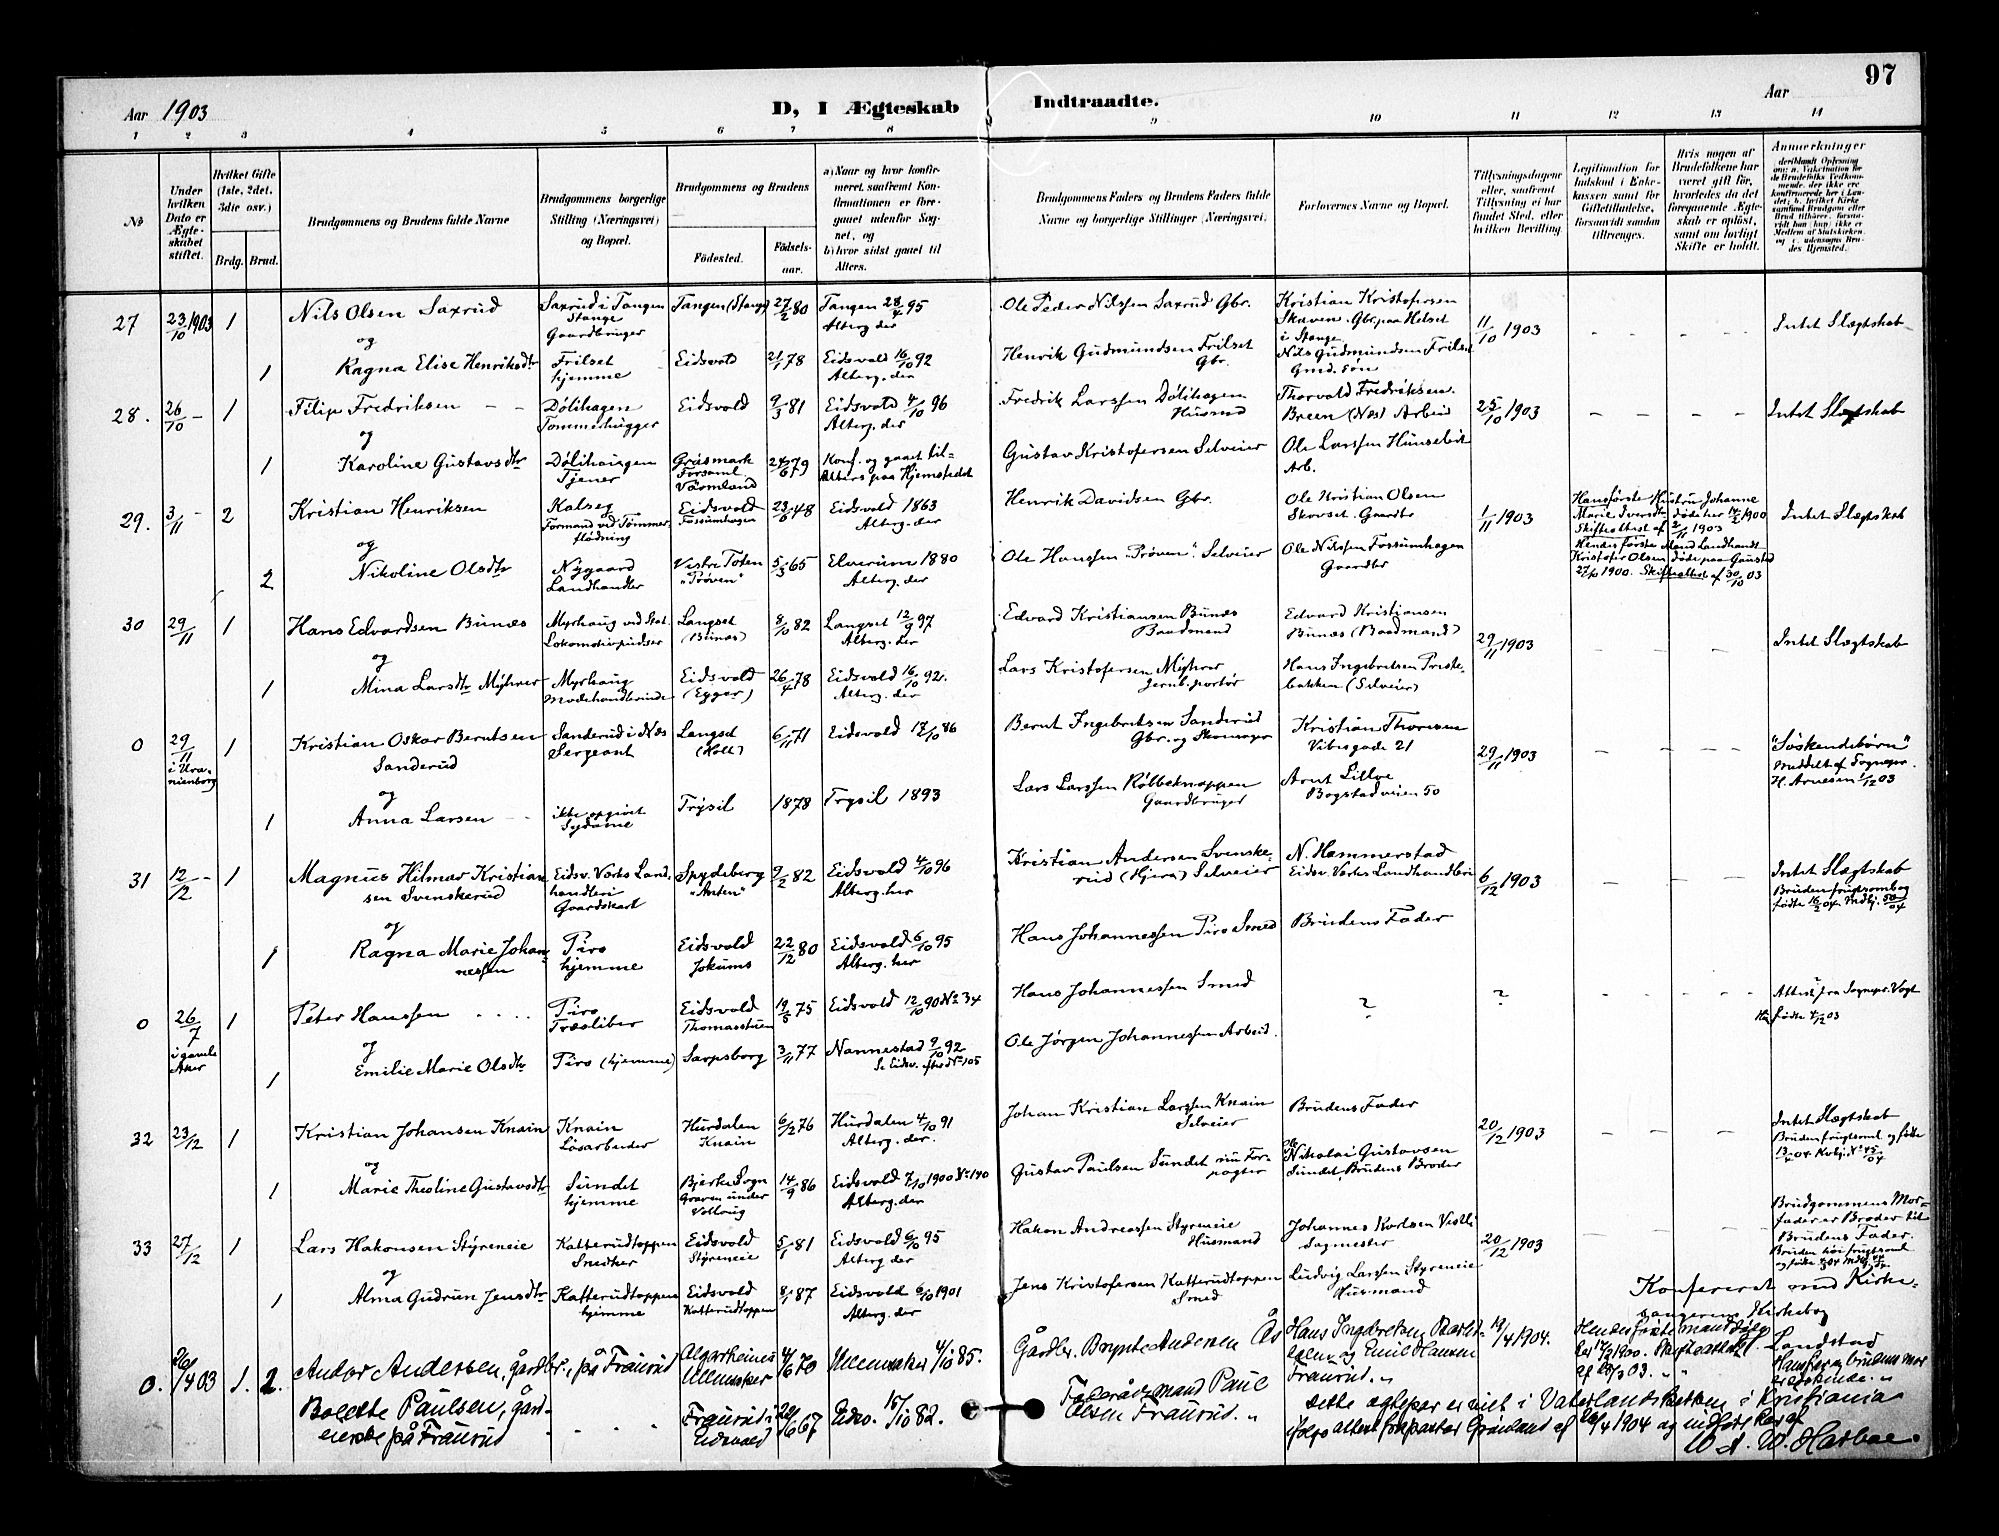 97
Aar 1903
D, I Ægteskab Indtraadte.
Aar
1 2 3 4 5 6 7 8 9 10 11 12 13 14
No
Under hvilken Dato er Ægteskabet stiftet.
Hvilket Gifte (1ste, 2det, 3die osv.)
Brdg. Brud.
Brudgommens og Brudens fulde Navne
Brudgommens borgerlige Stilling (Næringsvei) og Bopæl.
Brudgommens og Brudens
Fødested. Fødselsaar.
a) Naar og hvor konfirmeret, saafremt Konfirmationen er foregaaet udenfor Sognet, og
b) hvor sidst gaaet til Alters.
Brudgommens Faders og Brudens Faders fulde Navne og borgerlige Stillinger (Næringsvei).
Forlovernes Navne og Bopæl.
Tillysningsdagene eller, saafremt Tillysning ei har fundet Sted, efter hvilken Bevilling.
Legitimation for Indskud i Enkekassen samt for Giftetilladelse, forsaavidt saadan tiltrænges.
Hvis nogen af Brudefolkene har været gift før, hvorledes da det foregaaende Ægteskab er opløst, samt om lovligt Skifte er holdt.
Anmerkninger
27 23/10 1903 1 Nils Olsen Saxrud Saxrud i Tangen Tangen (Stange) 27/2 80 Tangen 28/4 95 Ole Peder Nilssen Saxrud Gbr. Kristian Kristofersen 11/10 1903 Intet Slægtskab
Stange Gaardbruger Alterg. der Skaven. Gbr. paa Helset i Stange
og
1 Ragna Elise Henriksdtr Frilset Eidsvold 21/1 78 Eidsvold 16/10 92 Henrik Gudmundsen Frilset Nils Gudmundsen Frilset
hjemme Alterg. der Gbr. Gmd. søn
28. 26/10 - 1 Filip Fredriksen Dølihagen Eidsvold 9/3 81 Eidsvold 4/10 96 Fredrik Larssen Dølihagen Thorvald Fredriksen. 25/10 1903 Intet Slægtskab
Tømmerhugger Alterg. der Husmd Breen (Næs) Arbeid
og
1 Karoline Gustavsdtr Dølihaugen Gräsmark 24/6 79 Konf. og gaaet til- Gustav Kristofersen Selveier Ole Larssen
Tjener Forsaml. Värmland Alters paa Hjemstedet Arb.
29. 3/11 - 2 Kristian Henriksen Kalseg Eidsvold 23/6 48 Eidsvold 1863 Henrik Davidsen Gbr. Ole Kristian Olsen 1/11 1903 Hans første Hustru Johanne Intet Slægtskab
Formand ved Tømmerflødning Fossumhagen Alterg. der Skovset. Gaardbr Marie Iversdtr døde her 14/2 1900
Skifteattest af 2/11 1903
og
2 Nikoline Olsdtr Nygaard Vestre Toten 5/3 65 Elverum 1880 Ole Hanssen "Prøven". Selveier Ole Nilssen Fossumhagen Hendes første Mand Landhandl
Landhandler "Prøven" Alterg. der Gaardbr Kristofer Olsen døde paa Gaustad
1900. Skifteattest af 30/10 03
30 29/11 1 Hans Edvardsen Bunæs Myrhaug ved Stat. Langset 8/10 82 Langset 12/9 97 Edvard Kristiansen Bunæs Edvard Kristiansen 29/11 1903 Intet Slægtskab
Lokomotivpudser (Bunæs) Alterg. der Baadmand Bunæs (Baadmand)
og
1 Mina Larsdtr Myhrer Myrhaug Eidsvold 26/4 78 Eidsvold 16/10 92. Lars Kristofersen Myhrer Hans Ingebretsen Prestebakken (Selveier)
Modehandlerinde (Egger) Alterg. der Jernb. portør
0 29/11 1 Kristian Oskar Berntsen Sanderud i Næs Langset 6/11 71 Eidsvold 17/10 86 Bernt Ingebretsen Sanderud Kristian Thoresen 29/11 1903 "Søskendebørn"
i Uranienborg Sanderud Sergeant (Holt) Gbr. og Skomager Vibesgade 21 Meddelt af Sognepr.
H. Arnesen 1/12 03
og
1 Anna Larsen ikke opgivet Trysil 1878 Trysil 1893 Lars Larssen Robbeknappen Arnt Lilloe
Sydame Gaardbruger Bogstadveien 50
31 12/12 - 1 Magnus Hilmar Kristiansen Svenskerud Eidsv. Værks Landhandleri Spydeberg 9/2 82 Eidsvold 4/10 96 Kristian Andersen Svenskerud (Hjera) Selveier N. Hammerstad 6/12 1903 Intet Slægtskab
Gaardskarl "Anten" Alterg. her Eidsv. Værks Landhandleri Bruden frugtsomb. og
fødte 16/2 04. Mdkj. 30/04
og
1 Ragna Marie Johannessen Piro Eidsvold 22/12 80 Eidsvold 6/10 95 Hans Johannessen Piro Smed Brudens Fader
hjemme Jokums Alterg. her
0 26/7 1 Peter Hanssen Piro Eidsvold 19/5 75 Eidsvold 12/10 90 No 34 Hans Johannessen Smed ? ? Attest fra Sognepr. Vogt
i gamle Aker Træsliber Thomasstuen Hun fødte 4/12 03
og
1 Emilie Marie Olsdtr Piro (hjemme) Sarpsborg 3/11 77 Nannestad 9/10 92 Ole Jørgen Johannessen Arbeid.
Se Eidsv. No 105
32 23/12 1 Kristian Johansen Knain Knain Hurdalen 6/12 76 Hurdalen 4/10 91 Johan Kristian Larssen Knain Brudens Fader 20/12 1903 Intet Slægtskab
Løsarbeider Knain Alterg. der. Selveier Bruden frugtsoml og fødte
13/4 04 Kvkj. No 45/04
og
1 Marie Theoline Gustavsdtr Sundet Bjerke Sogn 14/9 86 Eidsvold 7/10 1900 No 140 Gustav Paulsen Sundet nu Forpagter Nikolai Gustavsen
hjemme Graven under Alterg. der Sundet, Brudens Broder
33 27/12 1 Lars Hakonsen Styreneie Katterudtoppen Eidsvold 5/1 81 Eidsvold 6/10 95 Hakon Andreassen Styreneie Johannes Karlsen Vestli 20/12 1903 Brudgommens Morfader er Broder til Brudens Fader.
Snedker Styreneie Alterg der Husmand Sagmester Bruden frugtsoml
og fødte
og
1 Alma Gudrun Jensdtr Katterudtoppen Eidsvold 8/1 87 Eidsvold 6/10 1901 Jens Kristofersen Katterudtoppen Ludvig Larssen Styreneie
hjemme Katterudtoppen Alterg. der Smed Husmand
Konfereret med Kirkesangerens Kirkebog
Landstad
0. 26/4 03 1. 2. Andor Andersen, gårdbr., på Fraurud Ullensaker 4/6 70 Ullensaker 4/10 85. Gårdbr. Brynte Andersen Ås Hans Ingebretsen og Emil Hansen Fraurud. 13/4 1904. Hendes første mand døde
1900. Skifteattest af 03.
Bolette Paulsen, gårdeierske på Fraurud Fraurud i Eidsvold 67 Eidsv. 15/10 82. Paul Olsen Fraurud.
Dette ægtepar er viet i Vaterlands kirken i Kristiania
ifølge attest fra pastor Grønland af 26/4 1904 og indført her af
W. Harboe.